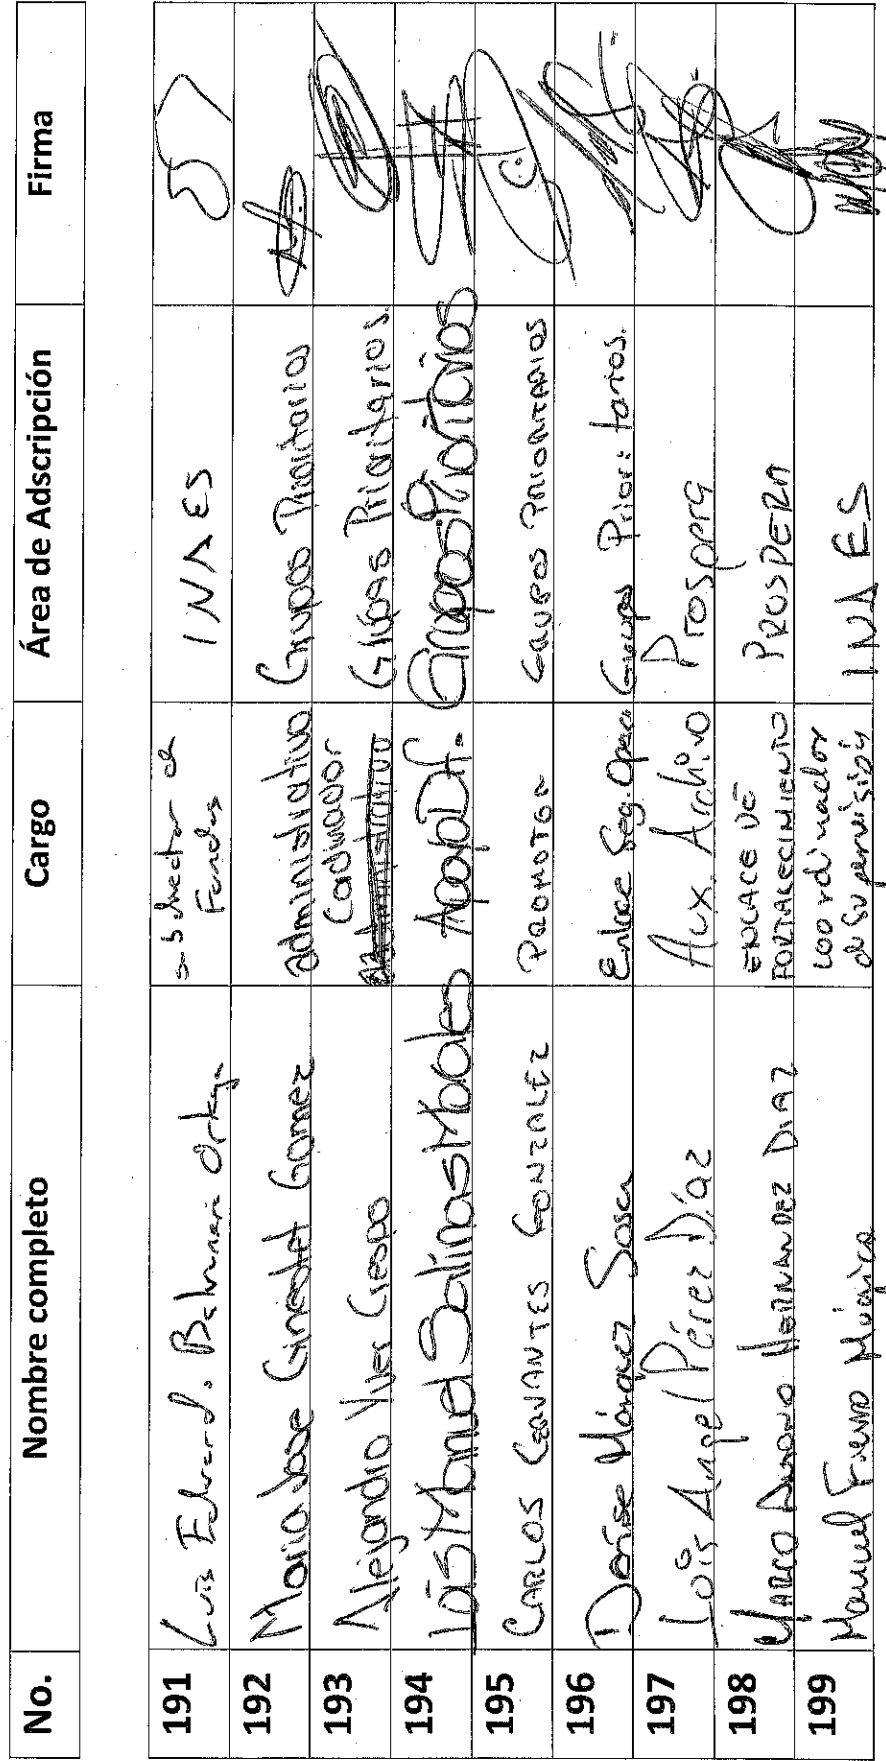 No. Nombre completo Cargo Área de Adscripción Firma
191 Luis Eduardo Ortega Fondos INAES
192 Maria Jose Ginestet Gomez administrativo Grupos Prioritarios
193 Alejandro Yver Crespo Cordinador Grupos Prioritarios.
194 Luis Manuel Salinas Morales Grupos Prioritarios
195 CARLOS CERVANTES GONZALEZ PROMOTOR GRUPOS PRIORITARIOS
196 Denise Márquez Sosa Enlace Seg. Grupos Prioritarios.
197 Luis Angel Pérez Díaz Aux. Archivo Prospera
198 MARCO HERNANDEZ DIAZ ENLACE DE
FORTALECIMIENTO PROSPERA
199 Manuel Fierro Múgica coordinador
de supervisión INAES